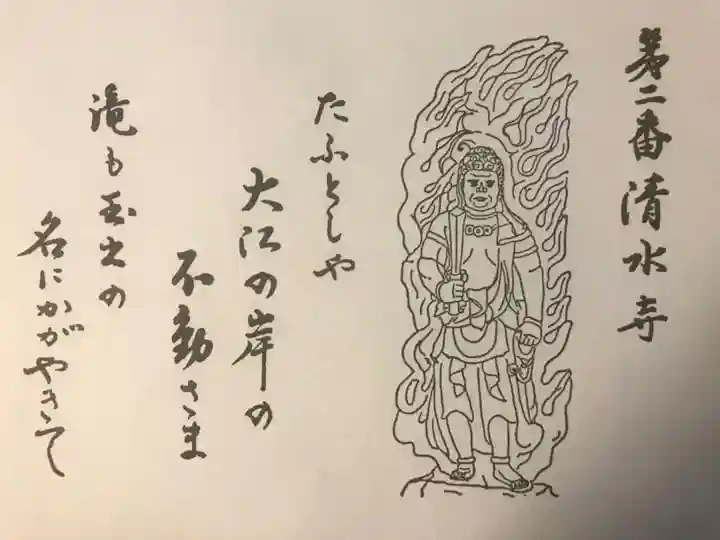 第二番清水寺
たふとしや
大江の岸の
不動さま
滝も玉出の
名にかがやきて